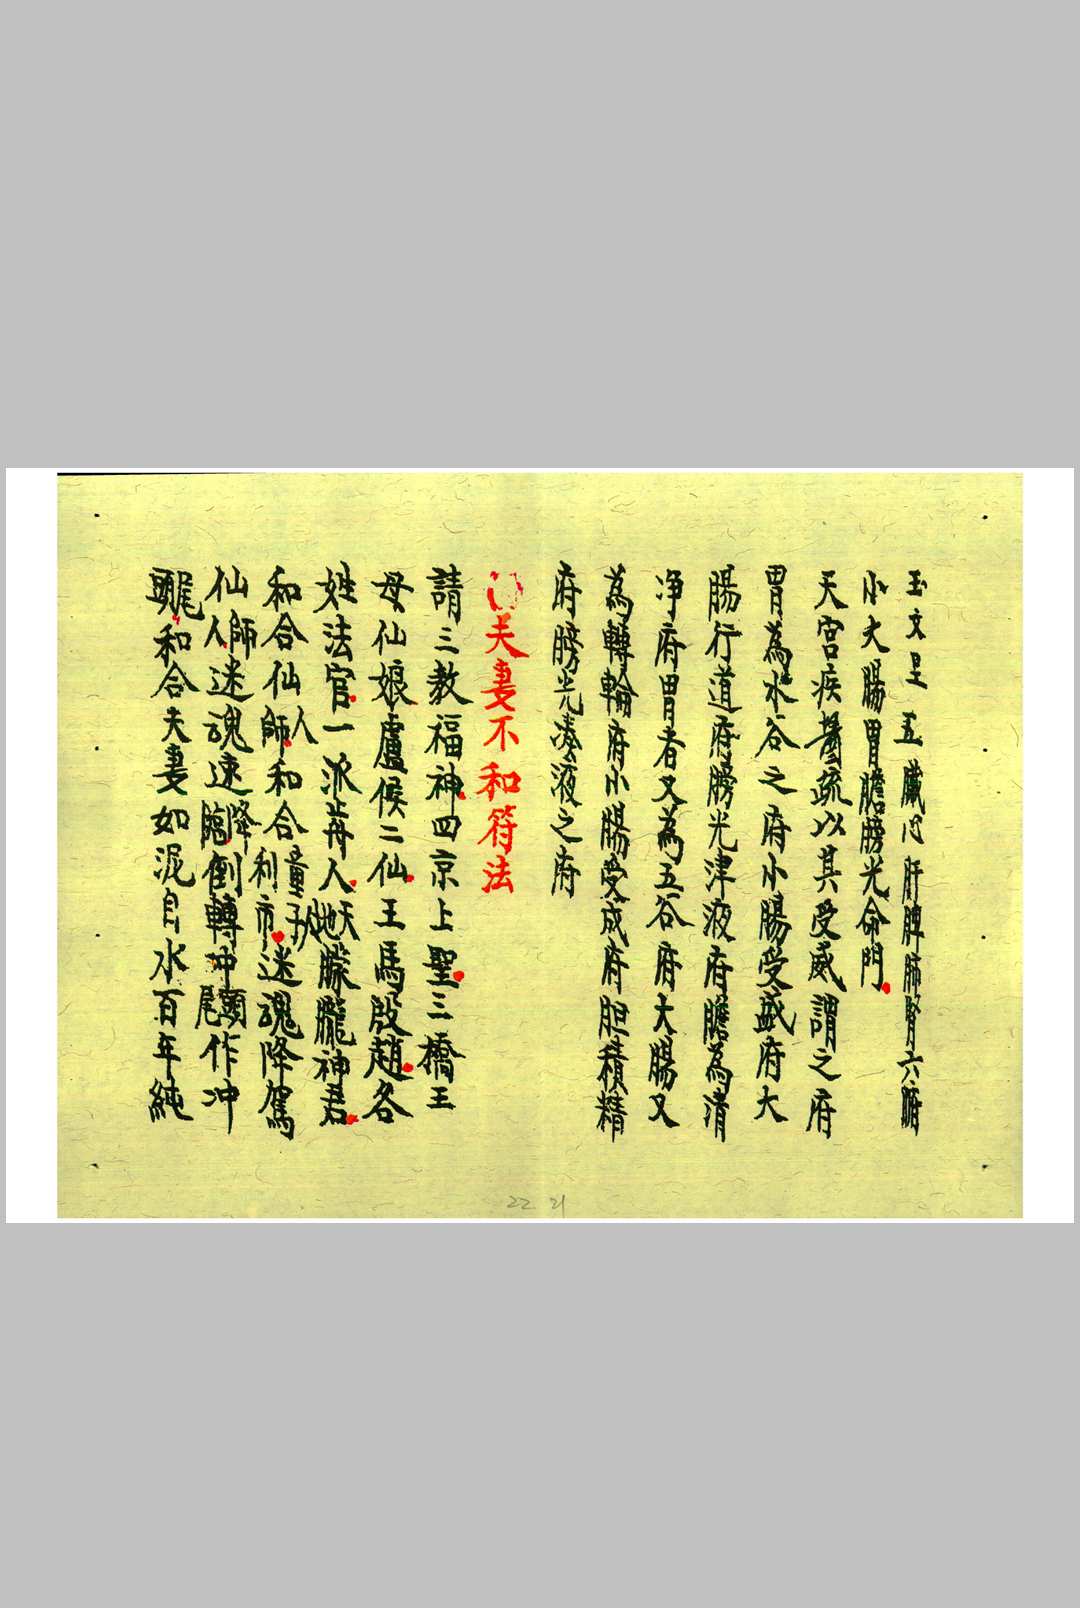 玉文呈 五臟心肝脾肺腎六腑
小大腸胃膽膀光命門
天宮疾醫疏以其受威謂之府
胃為水谷之府小腸受盛府大
腸行道府膀光津液府膽為清
净府胃者又為五谷府大腸又
為轉輪府小腸受成府胆積精
府膀光湊液之府
夫妻不和符法
請三教福神四京上聖三橋王
母仙娘盧候二仙王馬殷趙各
姓法官一派苒人天地朦朧神君
和合仙師人和合童子利市仙人迷魂降駕
仙師人迷魂速降臨倒轉冲頭尾作冲
頭尾和合夫妻如泥自水百年純
22 21